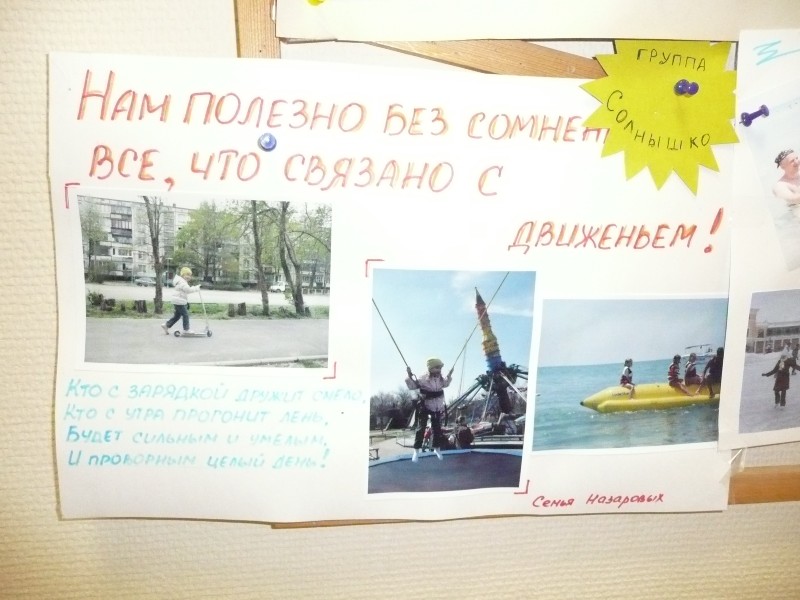 НАМ ПОЛЕЗНО БЕЗ
ВСЕ, ЧТО СВЯЗАНО С
ДВИЖЕНЬЕМ!
ГРУППА
СОЛНЫШКО
КТО С ЗАРЯДКОЙ ДРУЖИТ СМЕЛО,
КТО С УТРА ПРОГОНИТ ЛЕНЬ,
БУДЕТ СИЛЬНЫМ И УМЕЛЫМ,
И ПРОВОРНЫМ ЦЕЛЫЙ ДЕНЬ!
Семья Назаровых